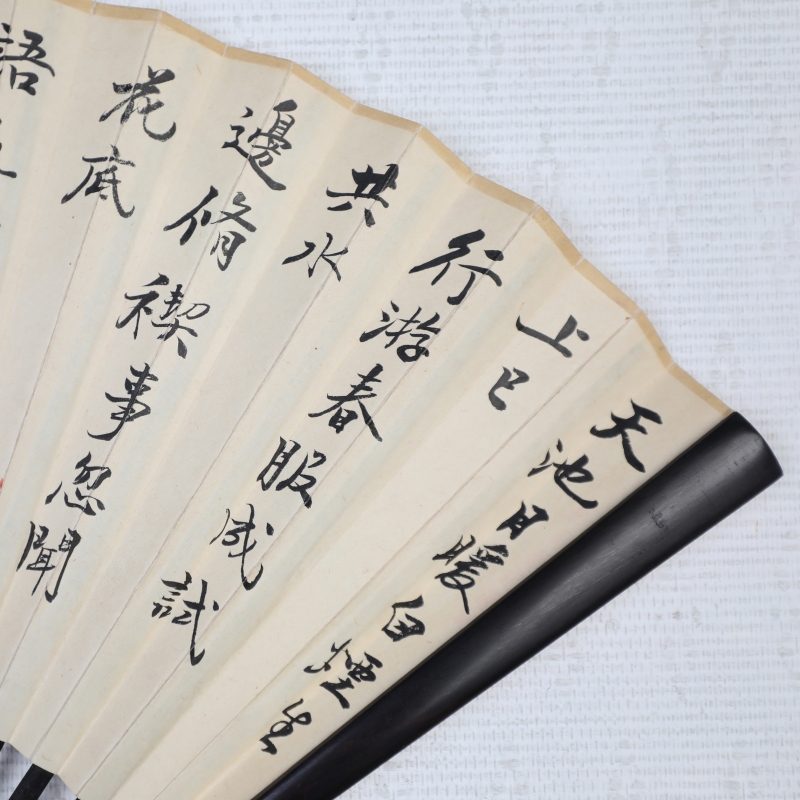 天池月暖白煙生
上巳
行游春服成試
共水
邊脩禊事忽聞
花底
語